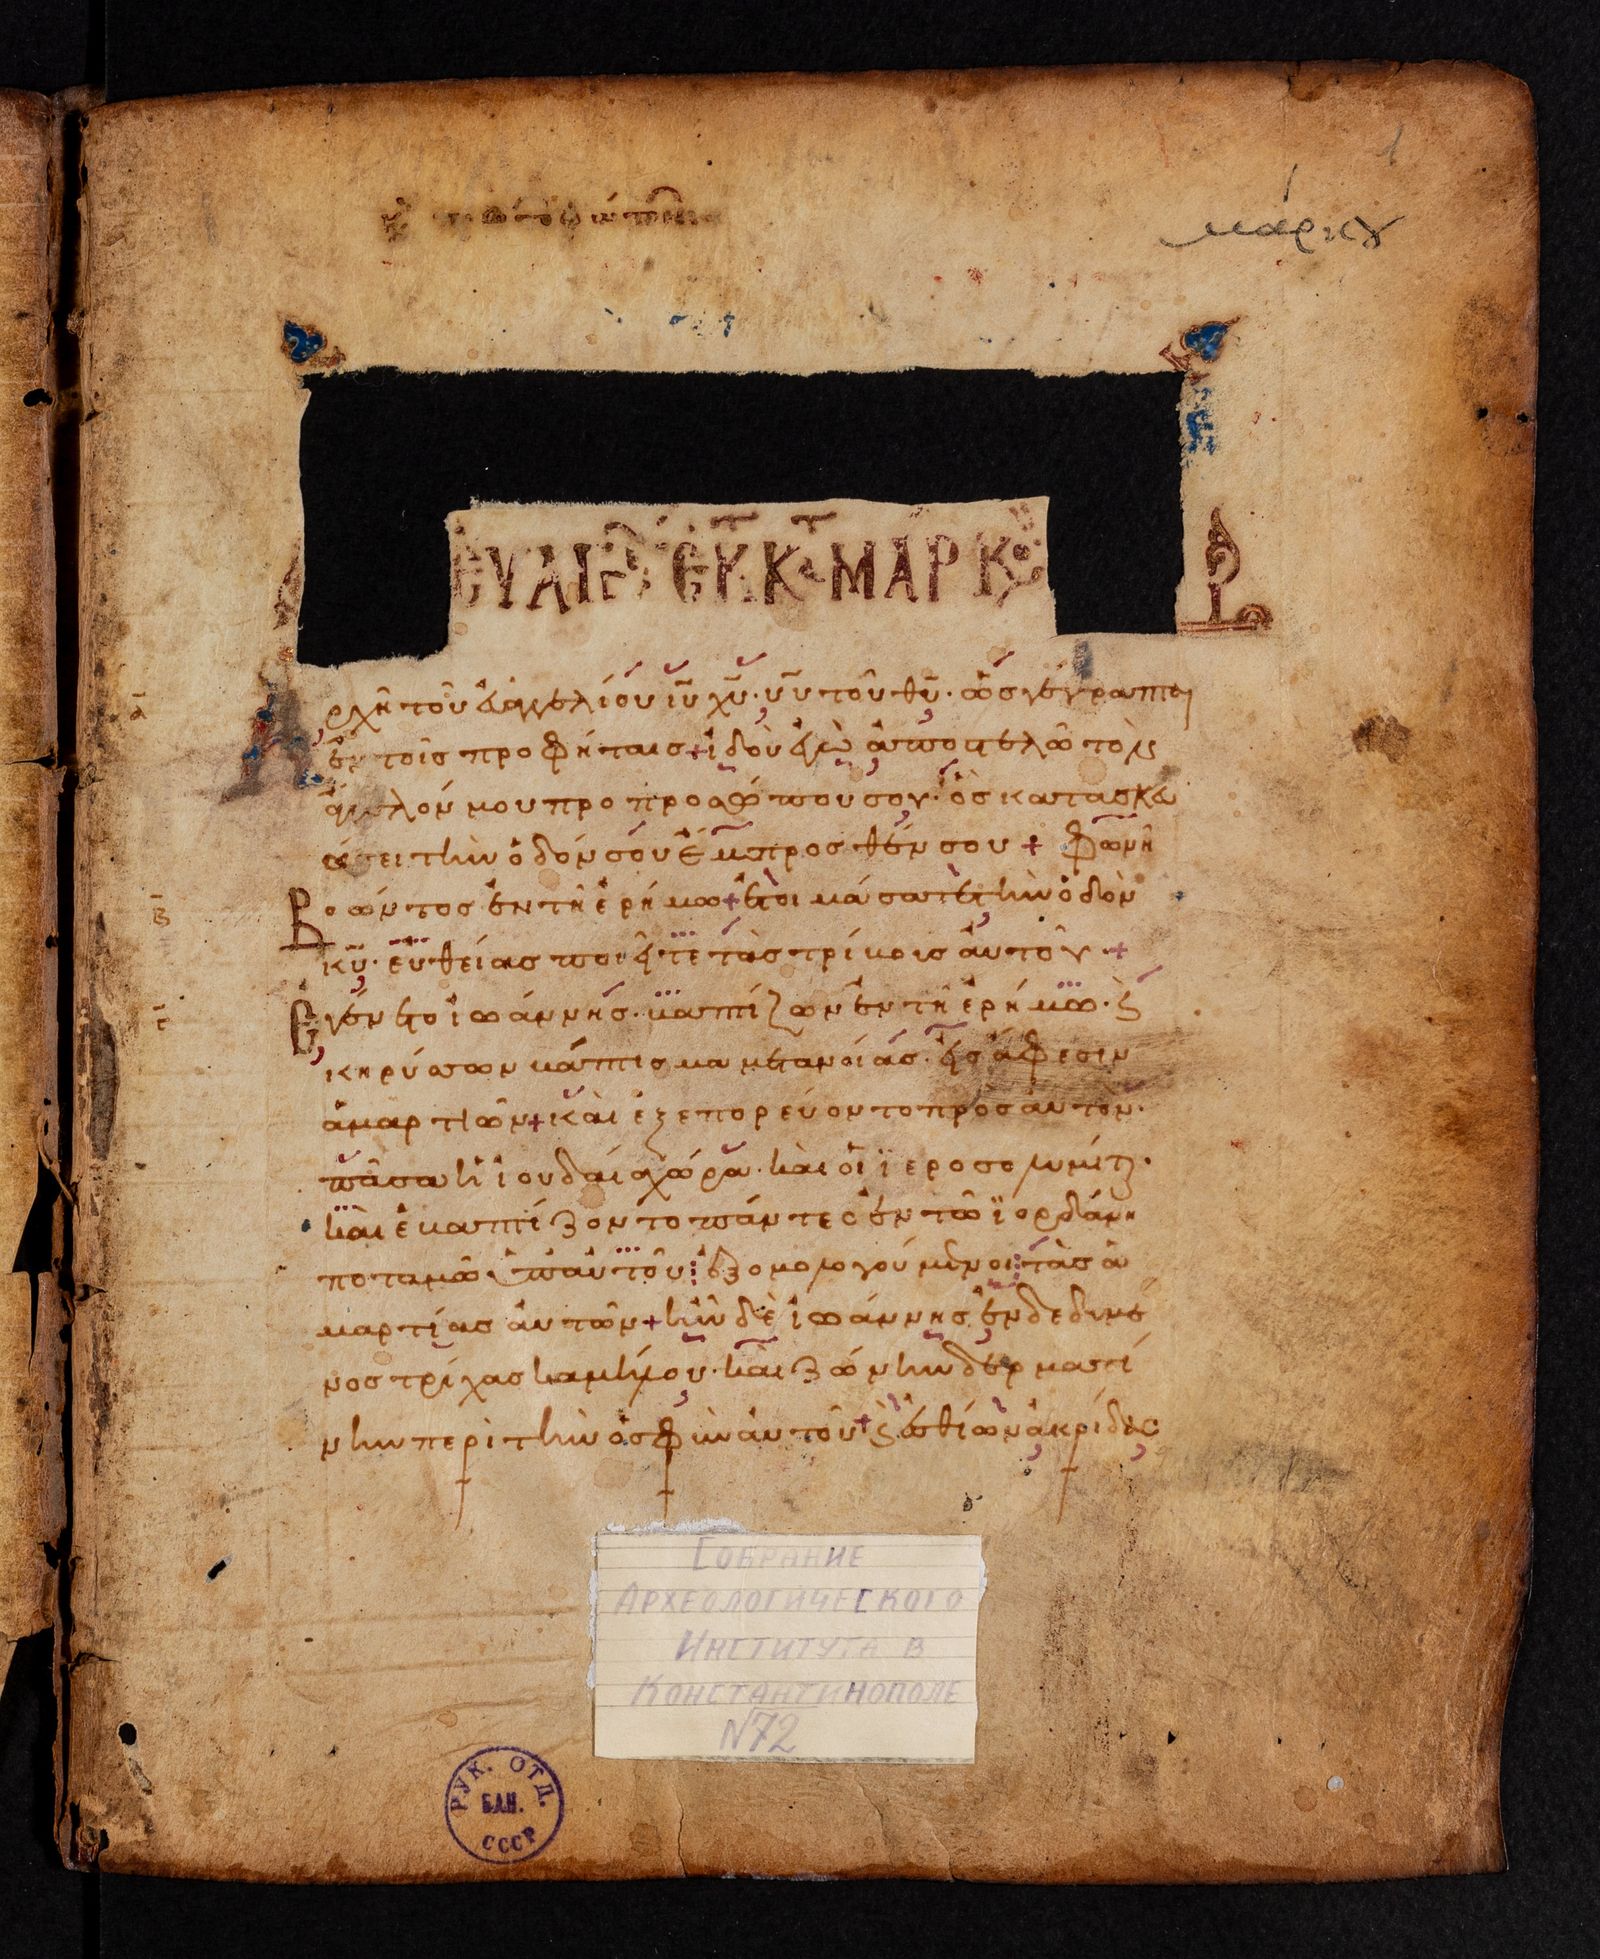 1
μάρκου
ΕΥΑΓΓ ΕΚ Κ ΜΑΡΚΟ
Ἀρχὴ τοῦ εὐαγγελίου ιυ χυ· υυ τοῦ θυ· ὡς γέγραπται
ᾱ
ἐν τοῖς προφήταις + ἰδοὺ ἐγὼ ἀποστελῶ τὸν
ἄγγελόν μου πρὸ προσώπου σου· ὃς κατασκευ
άσει τὴν ὁδόν σου ἔμπροσθέν σου + φωνὴ
βοῶντος ἐν τῇ ἐρήμω + ἑτοιμάσατε τὴν ὁδὸν
β̄
κυ· εὐθείας ποιεῖτε τὰς τρίβους αὐτοῦ +
ἐγένετο ἰωάννης· βαπτίζων ἐν τῇ ἐρήμω· καὶ
κηρύσσων βάπτισμα μετανοίας· εἰς ἄφεσιν
ἁμαρτιῶν + καὶ ἐξεπορεύοντο πρὸς αὐτὸν·
πᾶσα ἡ ἰουδαία χώρα· καὶ οἱ ἱεροσολυμῖται·
καὶ ἐβαπτίζοντο πάντες ἐν τῶ ἰορδάνη
ποταμῶ ὑπ αὐτοῦ· ἐξομολογούμενοι τὰς ἁ
μαρτίας αὐτῶν + ἦν δὲ ἰωάννης ἐνδεδυμέ
νος τρίχας καμήλου· καὶ ζώνην δερματί
νην περὶ τὴν ὀσφὺν αὐτοῦ + καὶ ἐσθίων ἀκρίδας
Собрание
Археологического
Института в
Константинополе
N72
РУК. ОТД.
БАН.
СССР